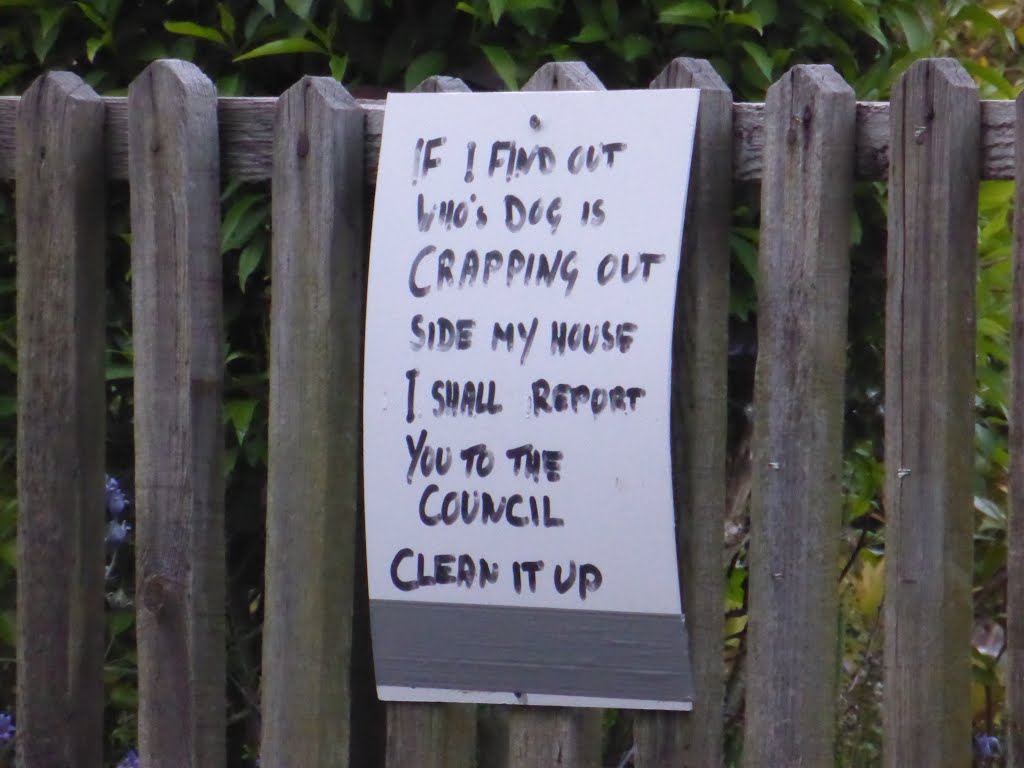 IF I FIND OUT
WHO'S DOG IS
CRAPPING OUT
SIDE MY HOUSE
I SHALL REPORT
YOU TO THE
COUNCIL
CLEAN IT UP